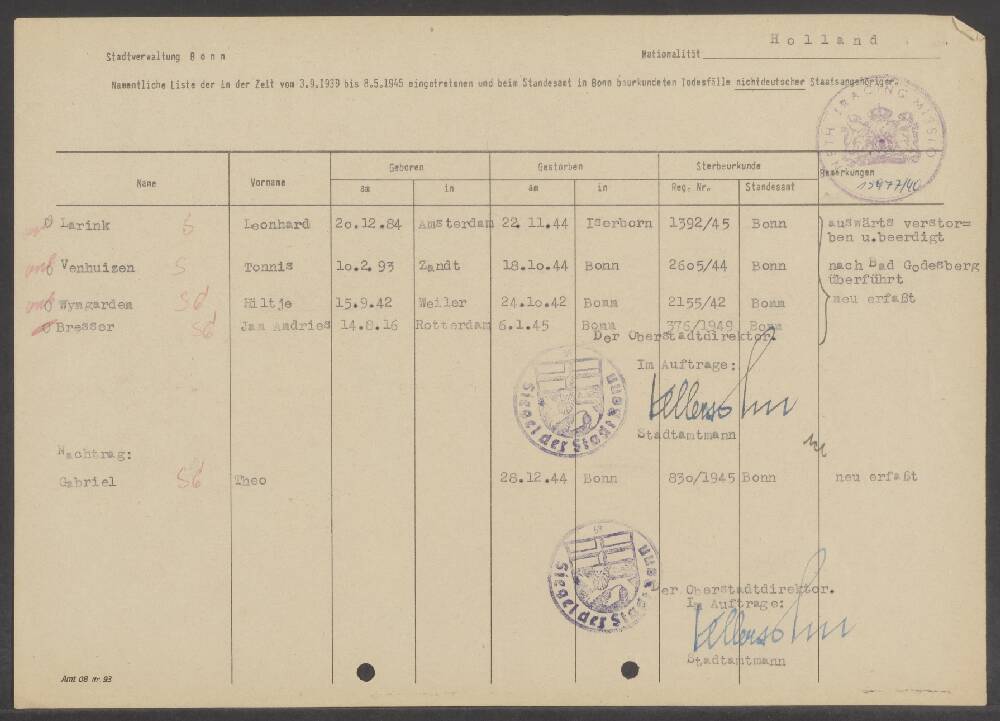 Holland
Stadtverwaltung Bonn
Nationalität
Namentliche Liste der in der Zeit von 3.9.1939 bis 8.5.1945 eingetretenen und beim Standesamt in Bonn beurkundeten Todesfälle nichtdeutscher Staatsangehöriger.
NETH TRACING MISSIO
Geboren Gestorben Sterbeurkunde
Name Vorname am in am in Reg. Nr. Standesamt Bemerkungen
Larink S Leonhard 20.12.84 Amsterdam 22.11.44 Iserborn 1392/45 Bonn auswärts verstor=
ben u.beerdigt
Venhuizen S Tonnis 10.2.93 Zandt 18.10.44 Bonn 2605/44 Bonn nach Bad Godesberg
überführt
Wymgarden Sd Hiltje 15.9.42 Weiler 24.10.42 Bonn 2155/42 Bonn neu erfaßt
Bresser Sd Jan Andries 14.8.16 Rotterdam 6.1.45 Bonn 376/1949 Bonn
Der Oberstadtdirektor.
Im Auftrage:
Siegel der Stadt Bonn
Stadtamtmann
Nachtrag:
Gabriel Sd Theo 28.12.44 Bonn 830/1945 Bonn neu erfaßt
Siegel der Stadt Bonn
Der Oberstadtdirektor.
Im Auftrage:
Stadtamtmann
Amt 08 nr. 93